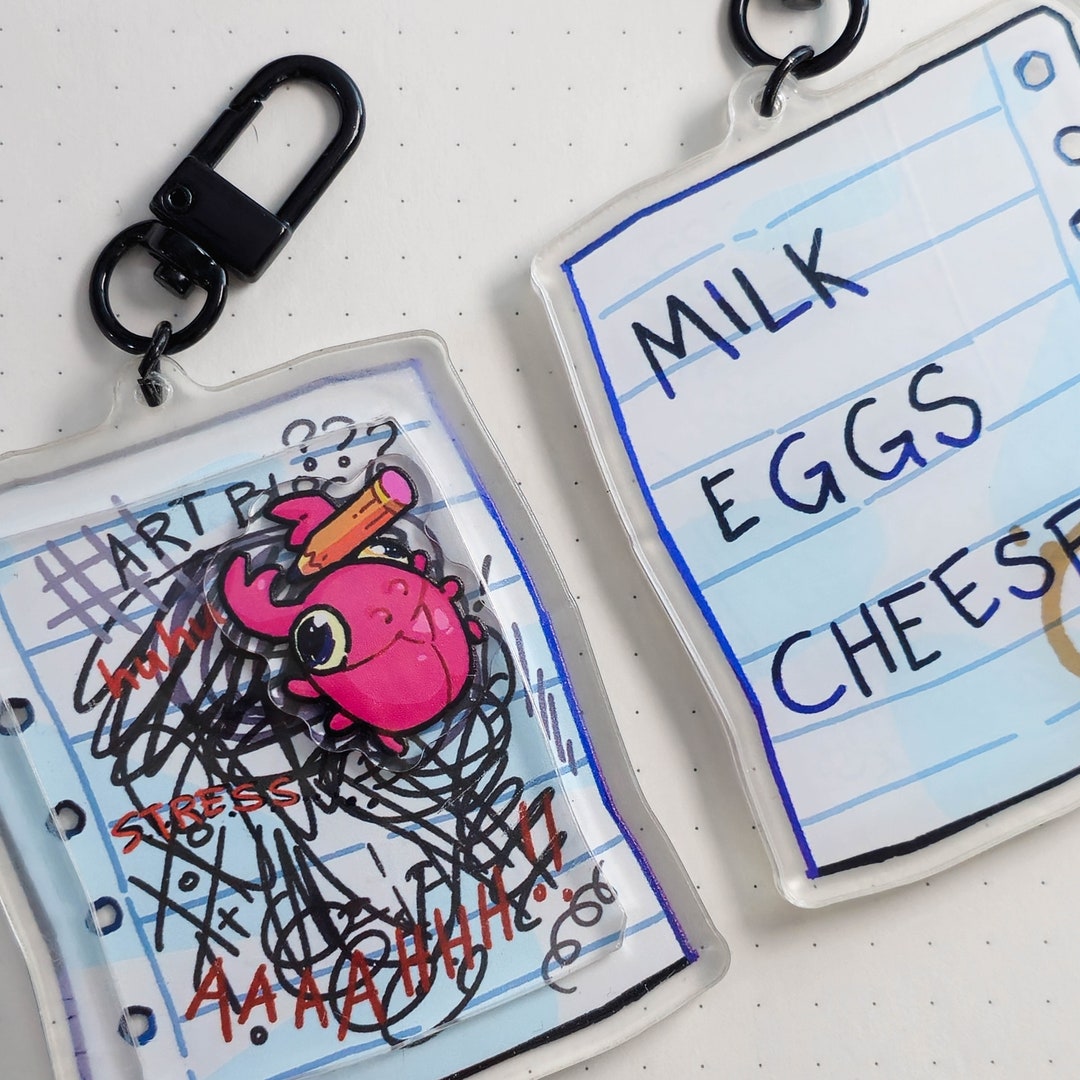 ???
ART BLOC
huhu
STRESS
AAAAHHH!!
MILK
EGGS
CHEESE